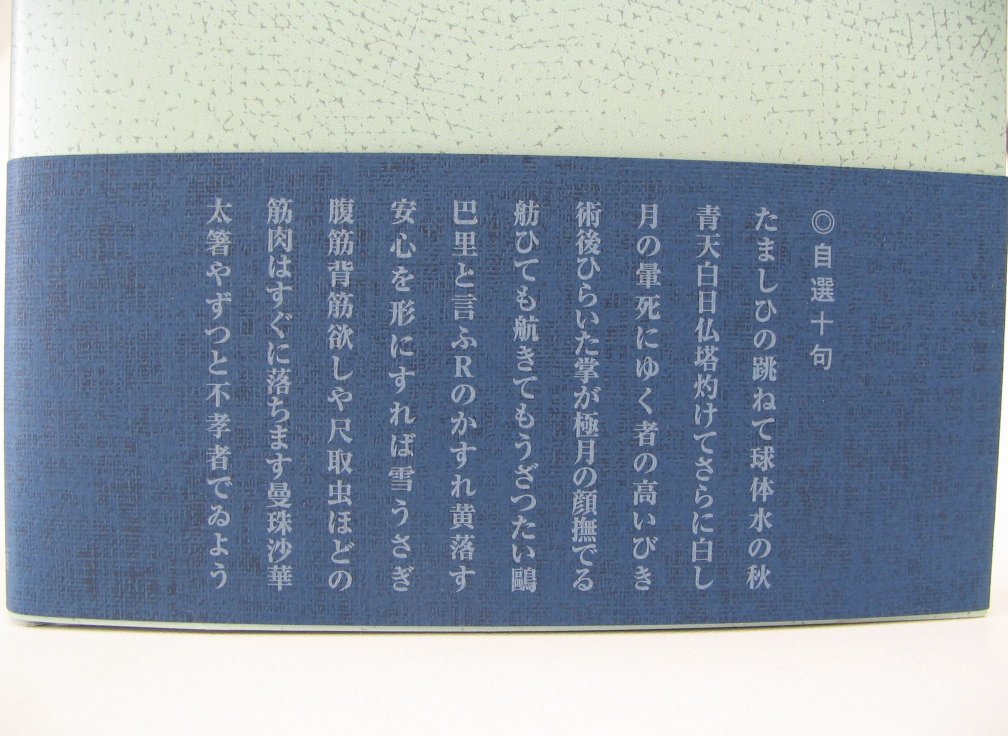 ◎自選十句
たましひの跳ねて球体水の秋
青天白日仏塔灼けてさらに白し
月の暈死にゆく者の高いびき
術後ひらいた掌が極月の顔撫でる
舫ひても航きてもうざつたい鷗
巴里と言ふRのかすれ黄落す
安心を形にすれば雪うさぎ
腹筋背筋欲しや尺取虫ほどの
筋肉はすぐに落ちます曼珠沙華
太箸やずつと不孝者でゐよう